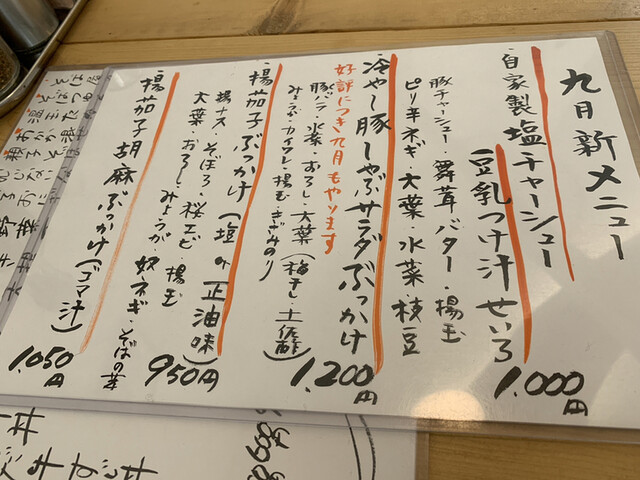 九月新メニュー
・自家製塩チャーシュー
豆乳つけ汁せいろ
豚チャーシュー・舞茸バター・揚玉
ピリ辛ネギ・大葉・水菜・枝豆
1.000円
・冷やし豚しゃぶサラダぶっかけ
好評につき九月もやります
豚バラ・水菜・おろし・大葉(梅干し・土佐酢)
みょうが・カイワレ・揚玉・きざみのり
1.200円
・揚茄子ぶっかけ(塩or正油味)
揚ナス・そぼろ・桜エビ・揚玉
大葉・おろし・みょうが・奴ネギ・そばの芽
950円
・揚茄子胡麻ぶっかけ(ゴマ汁)
1.050円